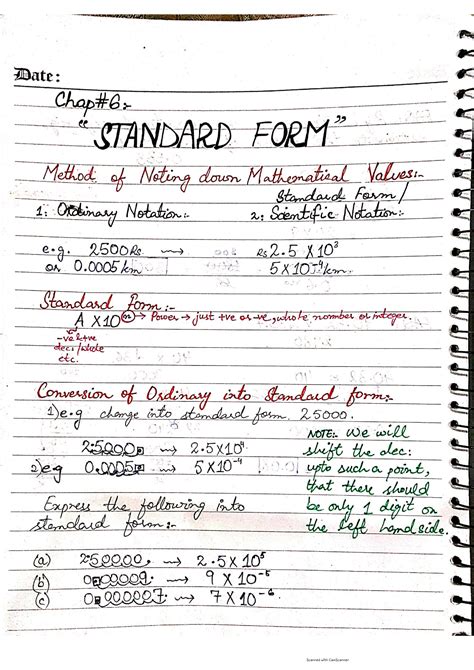 Date:
Chap#6:-
"STANDARD FORM"
Method of Noting down Mathematical Values:-
1: Ordinary Notation:-
2: Standard Form / Scientific Notation:-
e.g. 2500Rs ⟿ Rs 2.5 X 10³
or 0.0005km 5 X 10⁻⁴km.
Standard Form:-
A X10ⁿ → Power → just +ve or -ve, whole nomber or integer.
-ve &+ve
deci/whole
etc.
Conversion of Ordinary into Standard form:-
1) e.g change into standard form. 25000.
2.5000 ⟿ 2.5x10⁴
2) e.g 0.0005 ⟿ 5 X10⁻⁴
NOTE:- We will
shift the dec:
upto such a point,
that there should
be only 1 digit on
the left hand side.
Express the following into
standard form:-
(a) 2.50000. ⟿ 2.5 x 10⁵
(b) 0.00009 ⟿ 9 X 10⁻⁵
(c) 0.000007 ⟿ 7 X 10⁻⁶.
Scanned with CamScanner